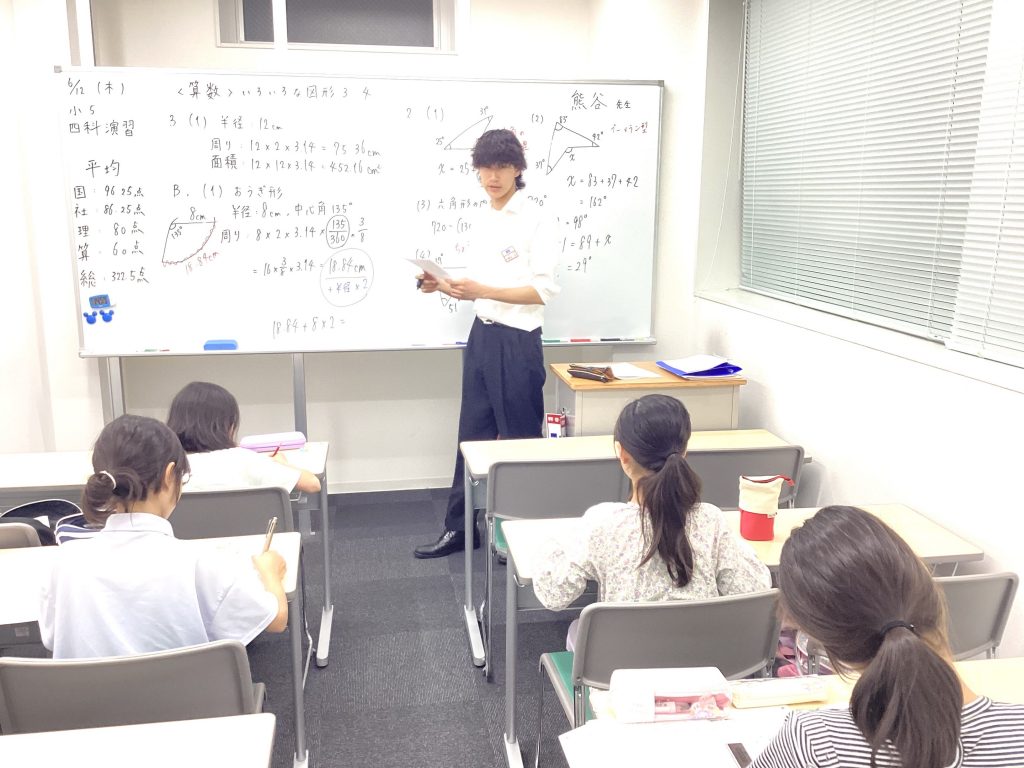 6/12 (木)
小5
四科演習
平均
国: 96.25点
社: 86.25点
理: 80点
算: 60点
総: 322.5点
<算数> いろいろな図形 3 4
3 (1) 半径: 12cm
周り: 12×2×3.14=75.36cm
面積: 12×12×3.14=452.16cm²
B. (1) おうぎ形
半径: 8cm, 中心角 135°
周り: 8×2×3.14×135/360 3/8
=16×3/8×3.14=18.84cm
+半径×2
18.84+8×2=
8cm
135°
18.84cm
2 (1)
35°
25°
x=25
(3) 六角形の内
720°
720-(13
51
熊谷 先生
(2)
83°
42°
37°
x
ブーメラン型
x=83+37+42
=162°
=98°
=69+x
=29°